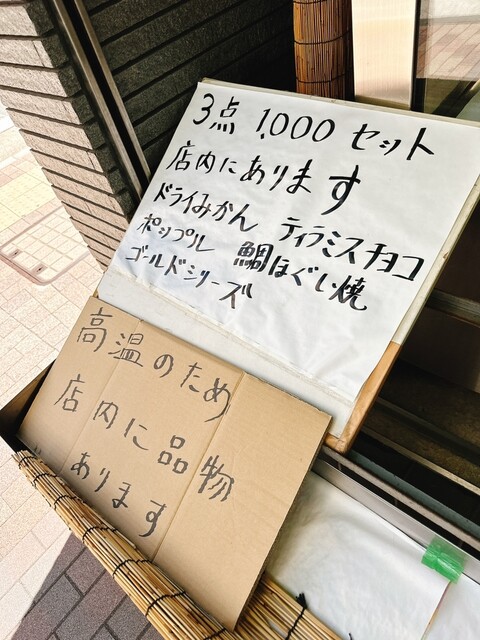 3点 1,000 セット
店内にあります
ドライみかん ティラミスチョコ
ポップル 鯛ほぐし焼
ゴールドシリーズ
高温のため
店内に品物
あります